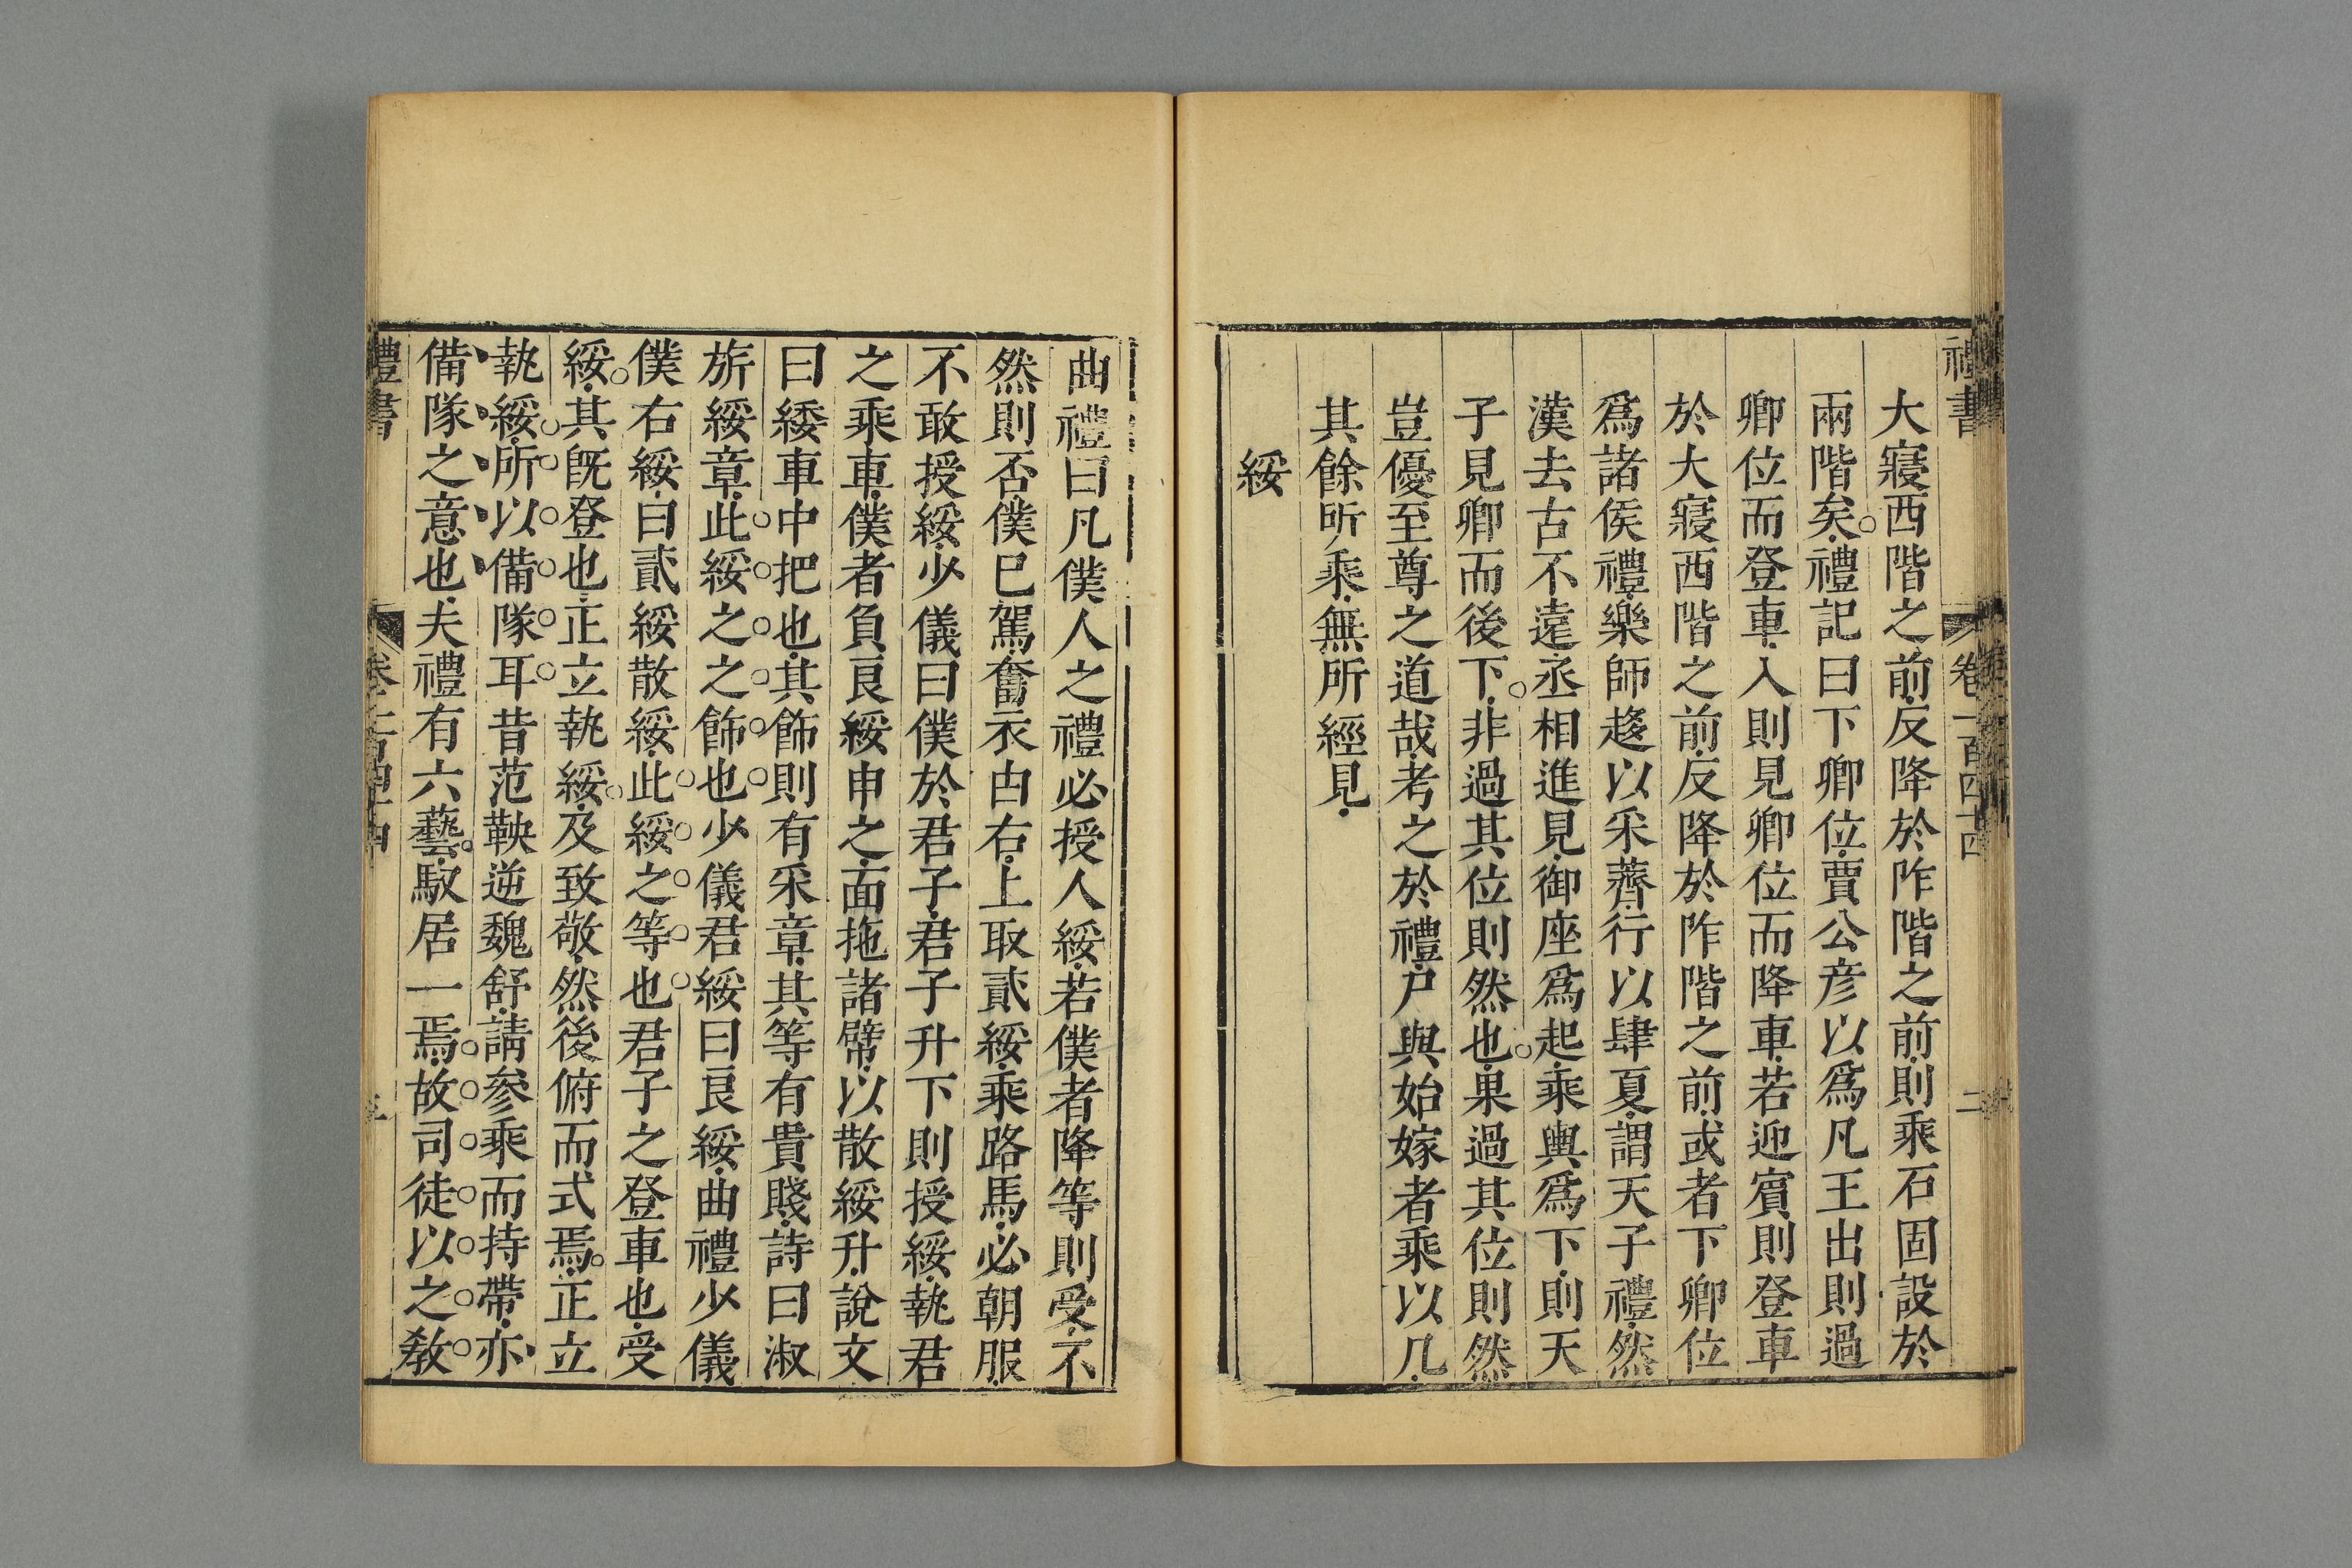 禮書 卷一百四十四 二
大寢西階之前反降於阼階之前則乘石固設於
兩階矣禮記曰下卿位賈公彦以爲凡王出則過
卿位而登車入則見卿位而降車若迎賓則登車
於大寢西階之前反降於阼階之前或者下卿位
爲諸侯禮樂師趍以采薺行以肆夏謂天子禮然
漢去古不遠丞相進見御座爲起乘輿爲下則天
子見卿而後下非過其位則然也果過其位則然
豈優至尊之道哉考之於禮尸與始嫁者乘以几
其餘所乘無所經見
綏
曲禮曰凡僕人之禮必授人綏若僕者降等則受不
然則否僕已駕奮衣由右上取貳綏乘路馬必朝服
不敢授綏少儀曰僕於君子君子升下則授綏執君
之乘車僕者負良綏申之面拖諸幦以散綏升說文
曰綏車中把也其飾則有采章其等有貴賤詩曰淑
旂綏章此綏之之飾也少儀君綏曰良綏曲禮少儀
僕右綏曰貳綏散綏此綏之等也君子之登車也受
綏其旣登也正立執綏及致敬然後俯而式焉正立
執綏所以備隊耳昔范鞅逆魏舒請參乘而持帶亦
備隊之意也夫禮有六藝馭居一焉故司徒以之敎
禮書